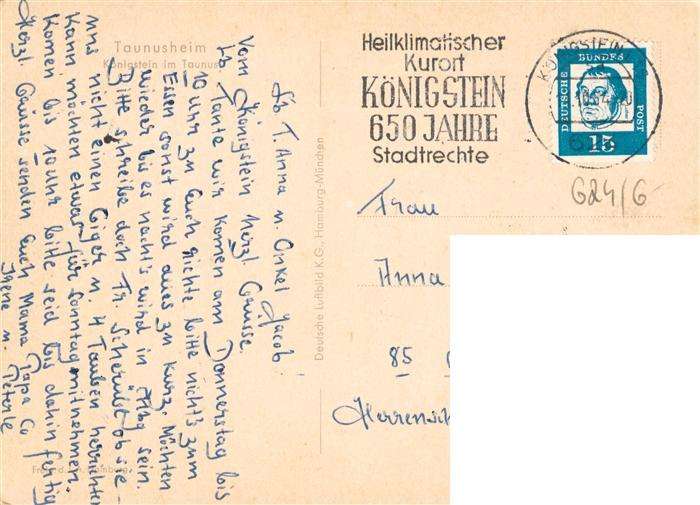 Taunusheim
Königstein im Taunus
Lb T. Anna u. Onkel Jacob.
Vom Königstein Herzl. Grüsse.
Lb Tante wir komen am Donnerstag bis
10 uhr zu Euch richte bitte nicht's zum
Essen sonst wird alles zu kurz. Möchten
wieder bis es nacht's wird in sein.
Bitte schreibe doch Fr. ob sie
uns nicht einen u. 4 Tauben herrichten
Kann, möchten etwas für Sonntag mitnehmen.
Komen bis 10 uhr bitte seid bis dahin fertig
Herzl. Grüsse senden Euch Mama Papa
Irene u. Peterle
Deutsche Luftbild K.G., Hamburg-München
Heilklimatischer
Kurort
KÖNIGSTEIN
650 JAHRE
Stadtrechte
KÖNIGSTEIN
DEUTSCHE BUNDES POST
15
G24/6
Frau
Anna
85
Herrensch